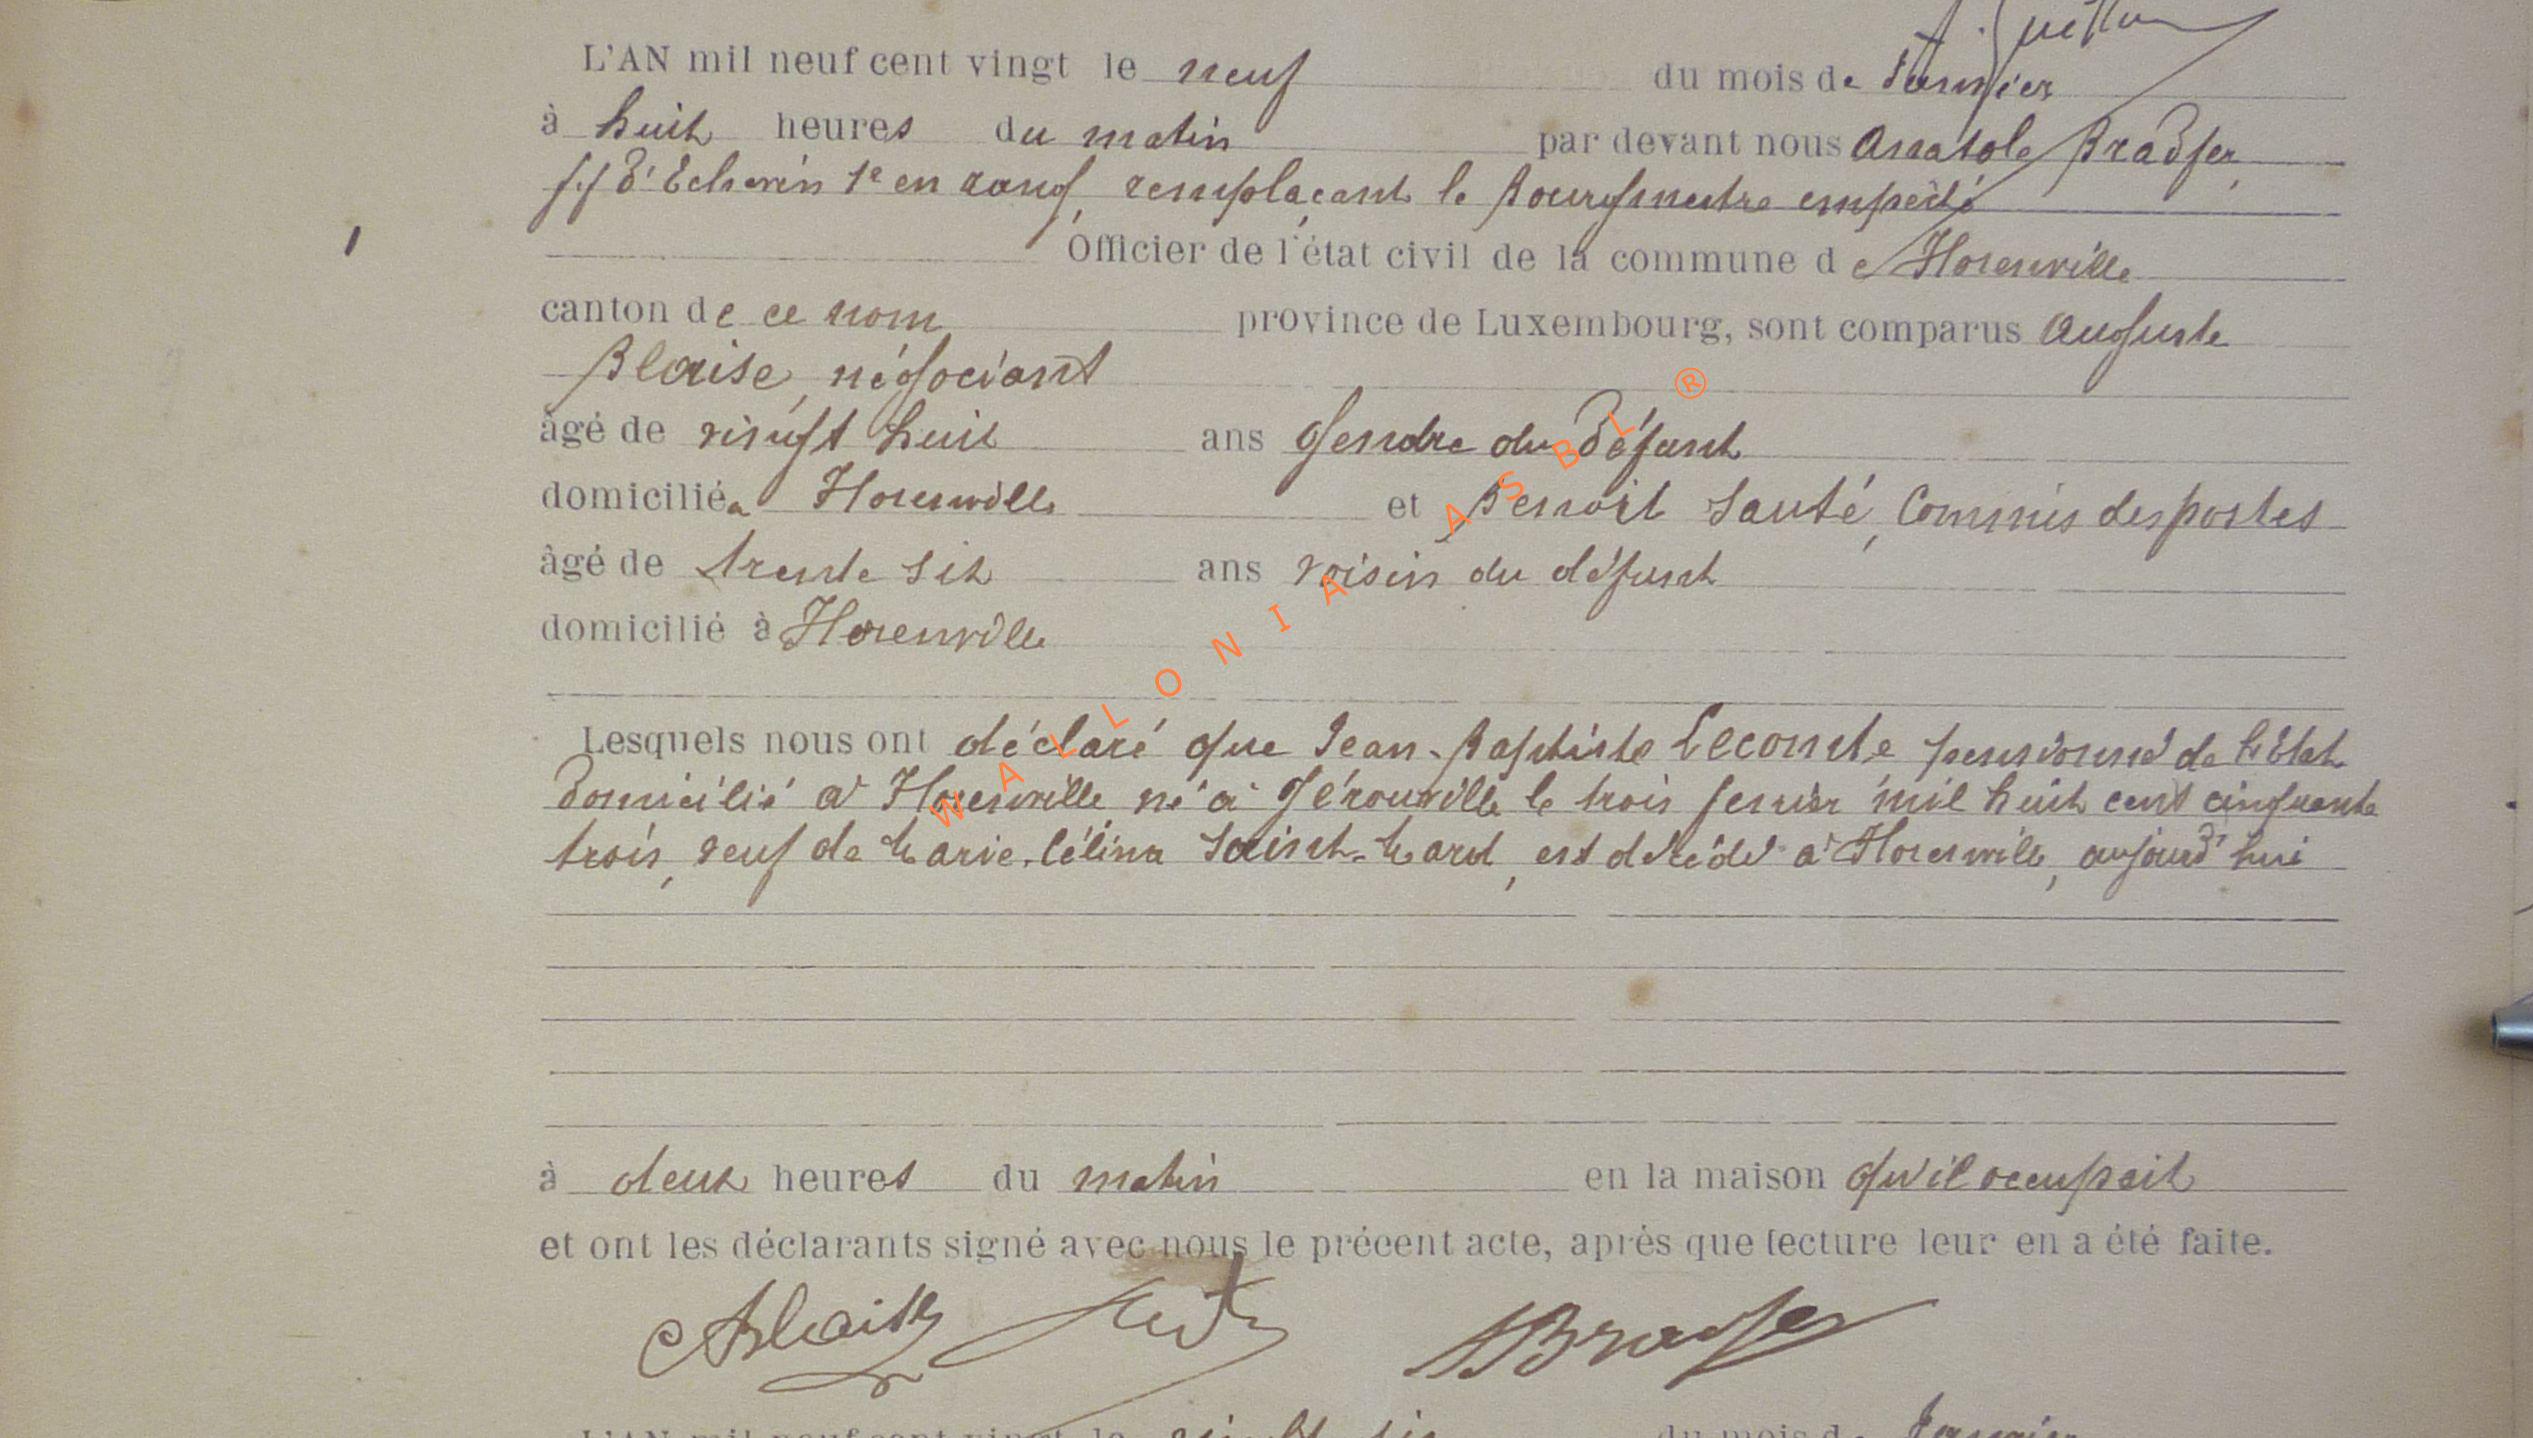 L'AN mil neuf cent vingt le neuf du mois de Janvier
à huit heures du matin par devant nous Anatole Bradfer,
f.f d'Echevin 1e en rang, remplaçant le Bourgmestre empêché
Officier de l'état civil de la commune de Florenville
canton de ce nom province de Luxembourg, sont comparus Auguste
Blaise, négociant
âgé de vingt huit ans gendre du défunt
domicilié à Florenville et Benoit Sauté, Commis des postes
âgé de trente six ans voisin du défunt
domicilié à Florenville
Lesquels nous ont déclaré que Jean-Baptiste Lecomte pensionné de l'Etat
domicilié à Florenville né à Gérouville le trois fevrier mil huit cent cinquante
trois, veuf de Marie-Célina Saint-Mard, est décédé à Florenville, aujourd'hui
à deux heures du matin en la maison qu'il occupait
et ont les déclarants signé avec nous le précent acte, après que lecture leur en a été faite.
ABlaise ABradfer
L'AN mil neuf cent vingt le vingt six du mois de Janvier
WALLONIA ASBL ®